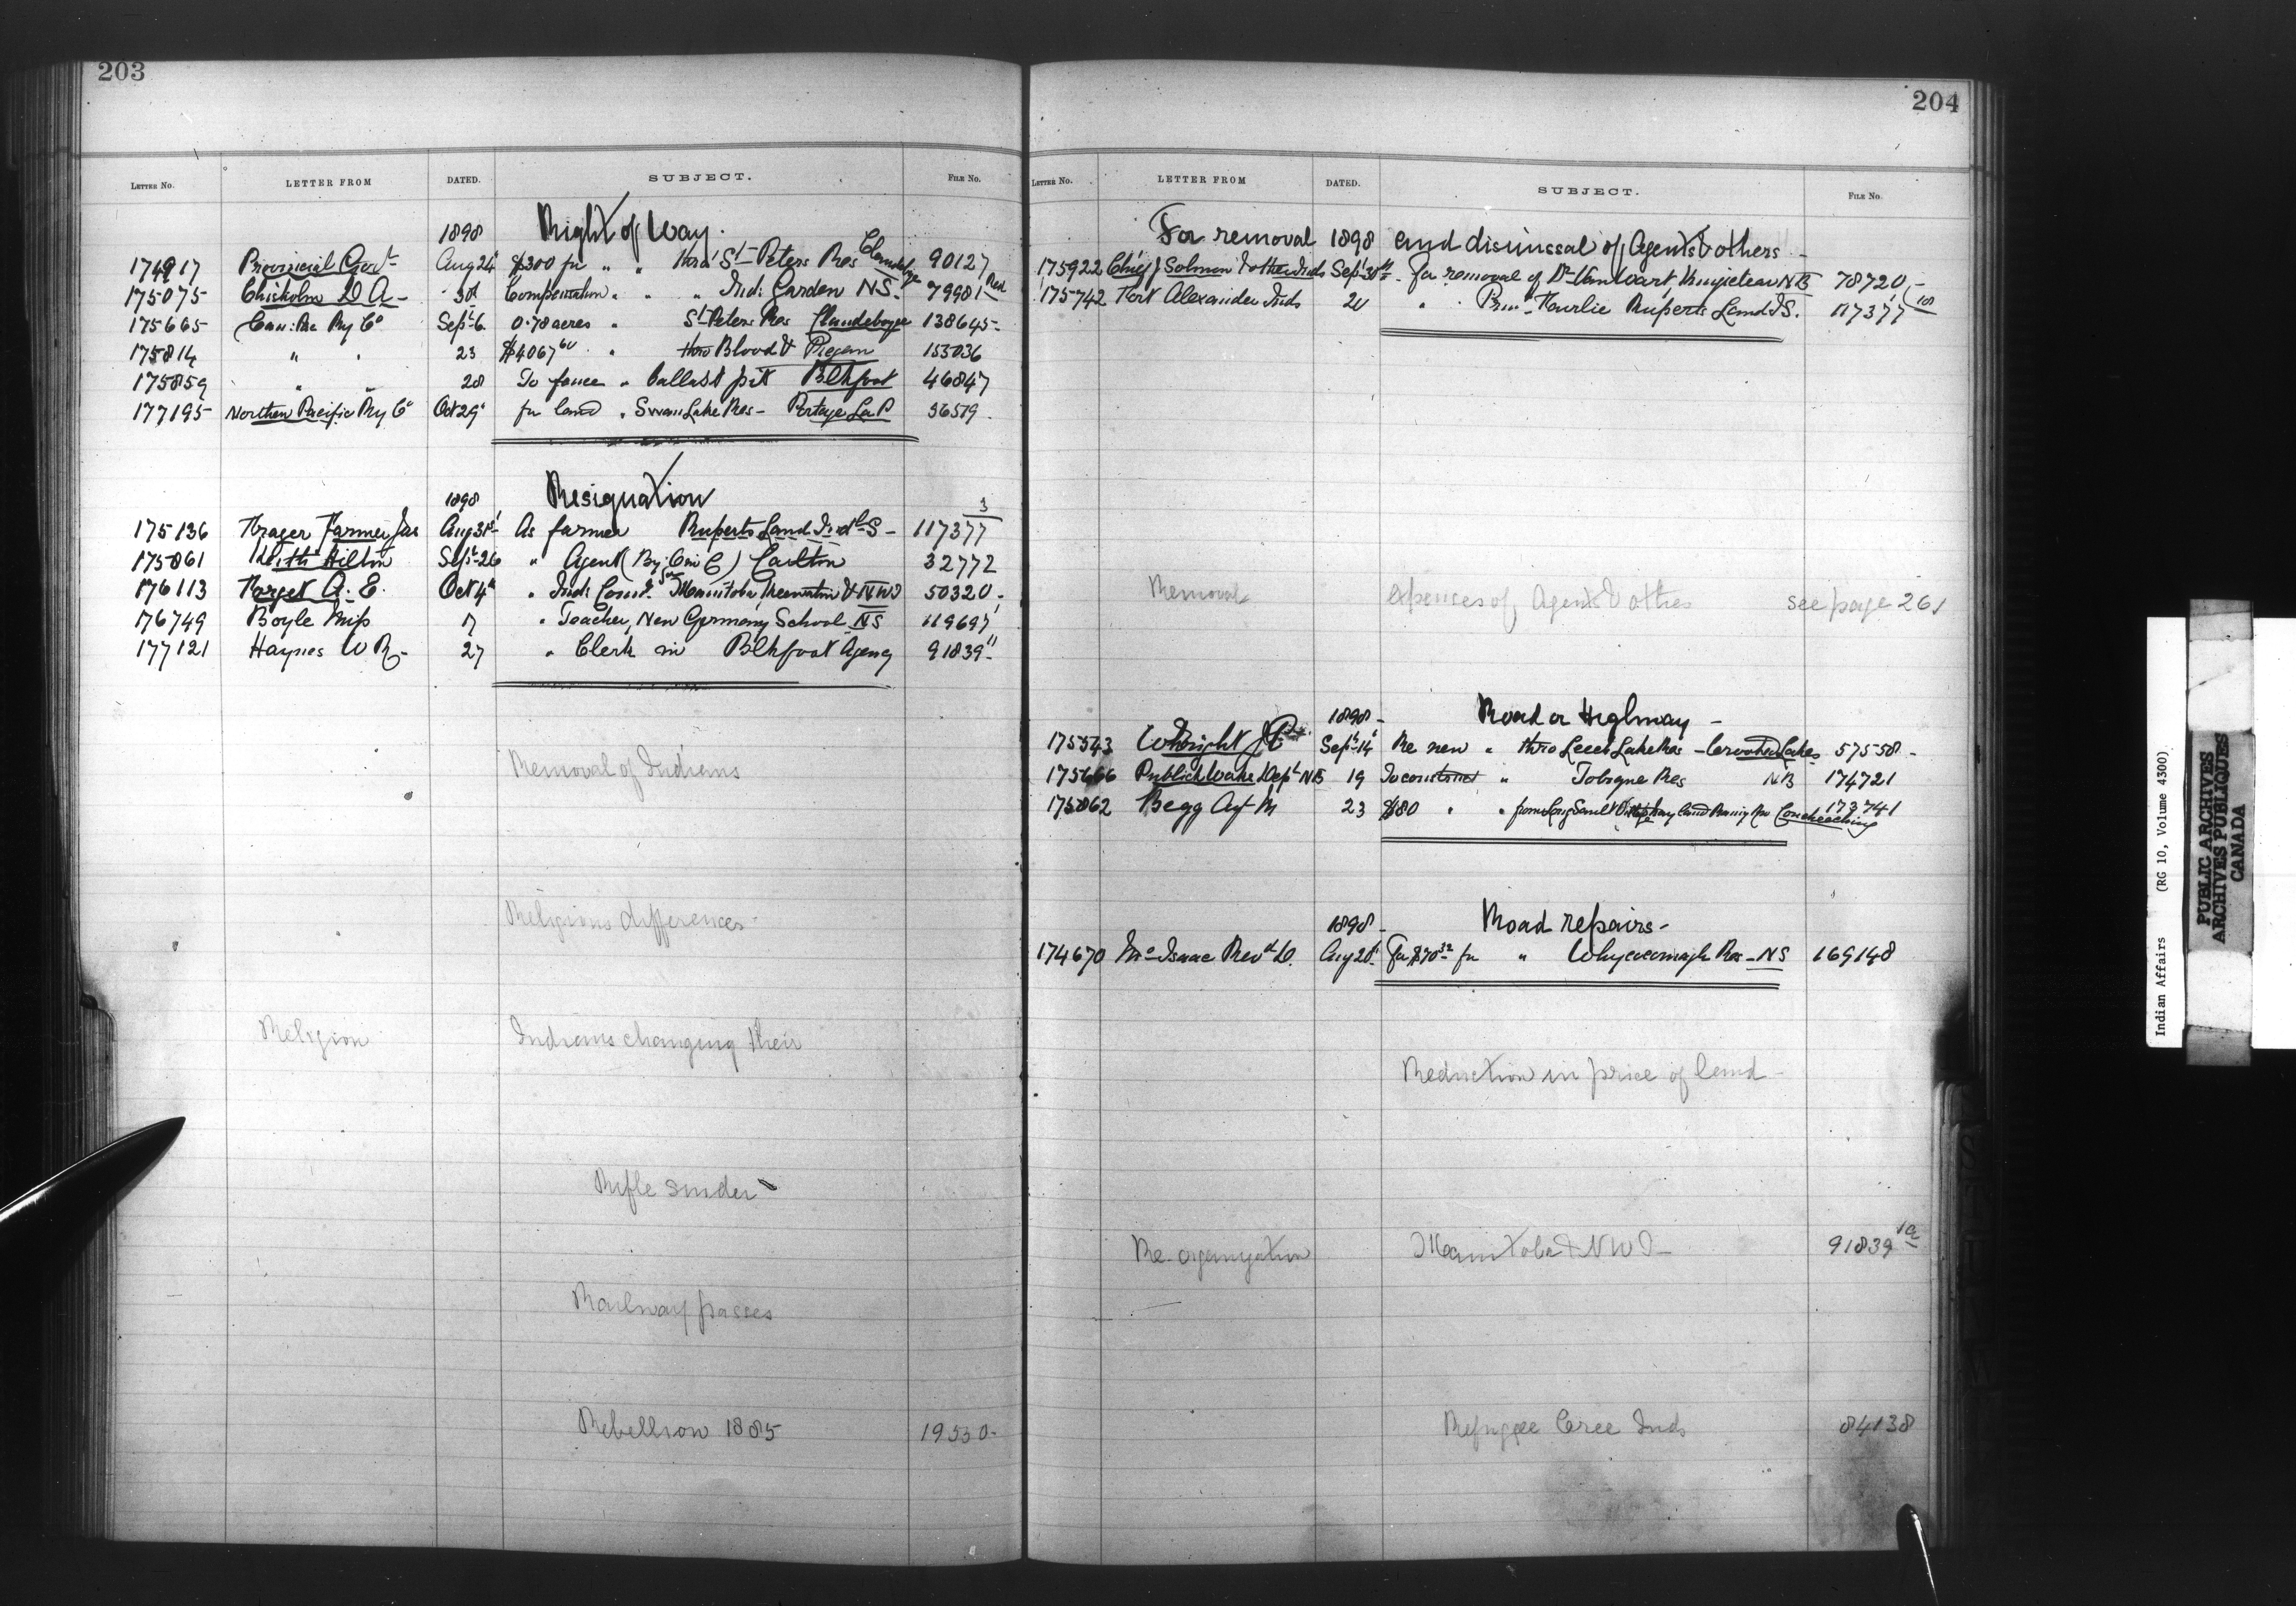 203
LETTER NO. LETTER FROM DATED. SUBJECT. FILE NO.
1898 Right of Way.
174917 Provincial Govt Aug 24 $300 for " " thro' St Peters Res Clandeboye 90127
175075 Chisholm D A - 30 Compensation " " " Ind: Garden NS - 79981 - Red
175665 Can: Pac Ry Co Sept 6 0.78 acres " St Peters Res Clandeboye 138645 -
175814 " " 23 $4067 60 " thro Blood & Piegan 153036
175859 " " 28 To fence " ballast pit Blkfoot 46847
177195 Northern Pacific Ry Co Oct 29 for land " Swan Lake Res - Portage La P 36579
1898 Resignation
175136 Farmer Jas Aug 31st As farmer Ruperts Land Indl S - 117377 3
175861 Keith Hilton Sept 26 " Agent Carlton 32772
176113 Forget A. E. Oct 4th " Ind: Comr. for Manitoba, Keewatin & NWT 50320
176749 Boyle Miss 17 " Teacher, New Germany School NS 119697
177121 Haynes W R - 27 " Clerk in Blkfoot Agency 91839 11
Removal of Indians
Religious differences -
Religion Indians changing their
Rifle Snider
Railway passes
Rebellion 1885 19550 -
204
LETTER NO. LETTER FROM DATED. SUBJECT. FILE NO.
For removal 1898 and dismissal of Agents & others -
175922 Chief J Solomon & other Inds Sept 30th For removal of Dr Van Wart, Kingsclear NB 78720 -
175742 Fort Alexander Inds 20 " " Prin: Fairlie Ruperts Land I S. 117377 10
Removal expenses of Agents & others see page 261
1898 - Road or Highway -
175543 Wright J P Sept 14 Re new " thro Leech Lake Res - Crooked Lakes 57558 -
175666 Publick Works Dept NB 19 To construct " Tobique Res NB 174721
175862 Begg Agt M 23 $80 " " from Long Sault to land Rainy Riv Coucheeching 173741
1898 - Road repairs -
174670 McIsaac Revd D. Aug 26 For $70 32 for " Whycocomagh Res - NS 169148
Reduction in price of land -
Re-organization Manitoba & NWT - 91839 1a
Refugee Cree Inds 84138
Indian Affairs (RG 10, Volume 4300)
PUBLIC ARCHIVES
ARCHIVES PUBLIQUES
CANADA